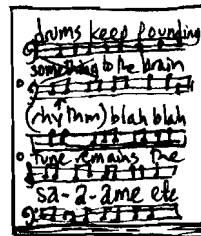 drums keep pounding
something to the brain
(rhythm) blah blah
tune remains the
sa-a-ame etc